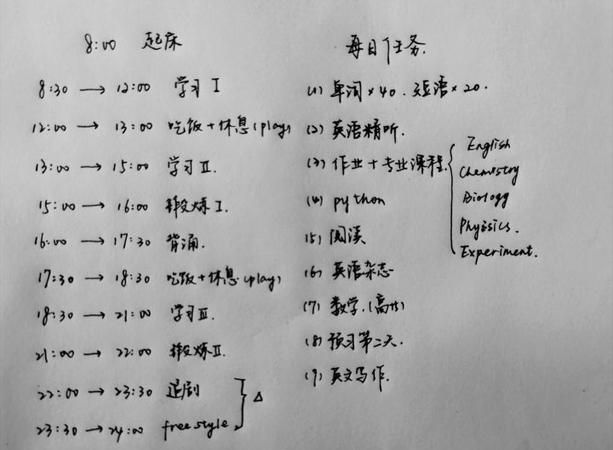 8:00 起床
8:30 → 12:00 学习 I
12:00 → 13:00 吃饭+休息(play)
13:00 → 15:00 学习 II.
15:00 → 16:00 锻炼 I.
16:00 → 17:30 背诵.
17:30 → 18:30 吃饭+休息(play)
18:30 → 21:00 学习 III.
21:00 → 22:00 锻炼 II.
22:00 → 23:30 追剧
23:30 → 24:00 free style
△
每日任务.
(1) 单词×40. 短语×20.
(2) 英语精听.
(3) 作业+专业课程.
English
Chemistry
Biology
Physics.
Experiment.
(4) python
(5) 阅读
(6) 英语杂志
(7) 数学.(高数)
(8) 预习第二天.
(9) 英文写作.